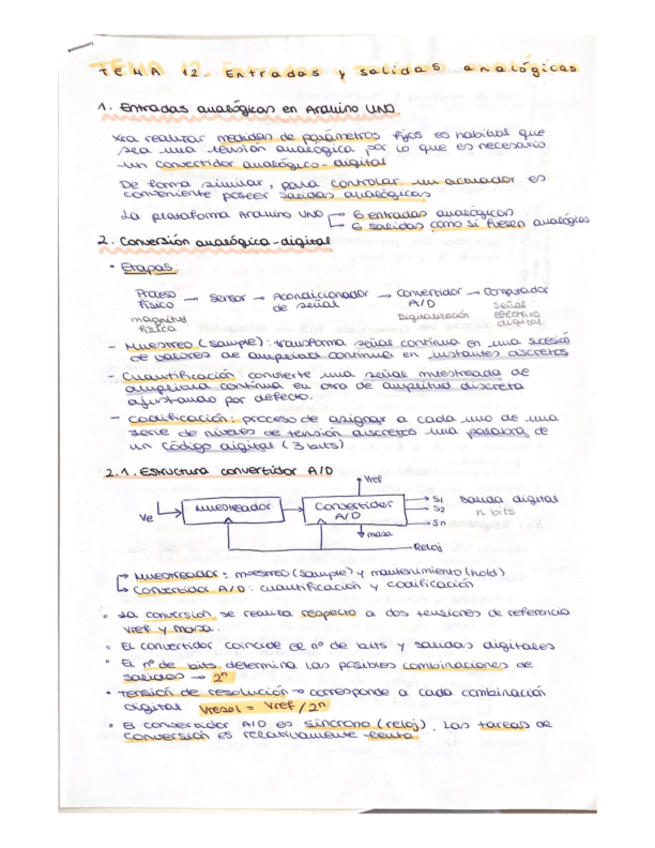 TEMA 12. Entradas y salidas analógicas
1. Entradas analógicas en Arduino UNO
Xra realizar medidas de parámetros fijos es habitual que
sea una tensión analógica por lo que es necesario
un convertidor analógico-digital
De forma similar, para controlar un actuador es
conveniente poseer salidas analógicas
La plataforma Arduino UNO → 6 entradas analógicas
→ 6 salidas como si fuesen analógicas
2. Conversión analógica-digital
• Etapas:
Proceso físico → Sensor → Acondicionador de señal → Convertidor A/D → Computador
magnitud física Digitalización señal eléctrica digital
- Muestreo (sample): transforma señal continua en una sucesión
de valores de amplitud continua en instantes discretos
- Cuantificación: convierte una señal muestreada de
amplitud continua en otro de amplitud discreta
ajustando por defecto.
- Codificación: proceso de asignar a cada uno de una
serie de niveles de tensión discretos una palabra de
un código digital (3 bits)
2.1. Estructura convertidor A/D
Vref
Ve Muestreador Convertidor A/D S1 S2 Sn salida digital n bits
masa
Reloj
→ Muestreador: muestreo (sample) y mantenimiento (hold)
→ Convertidor A/D: cuantificación y codificación
• La conversión se realiza respecto a dos tensiones de referencia
Vref y masa.
• El convertidor coincide el nº de bits y salidas digitales
• El nº de bits determina las posibles combinaciones de
salidas → 2ⁿ
• Tensión de resolución → corresponde a cada combinación
digital Vresol = Vref/2ⁿ
• El convertidor A/D es síncrono (reloj). Las tareas de
conversión es relativamente lenta